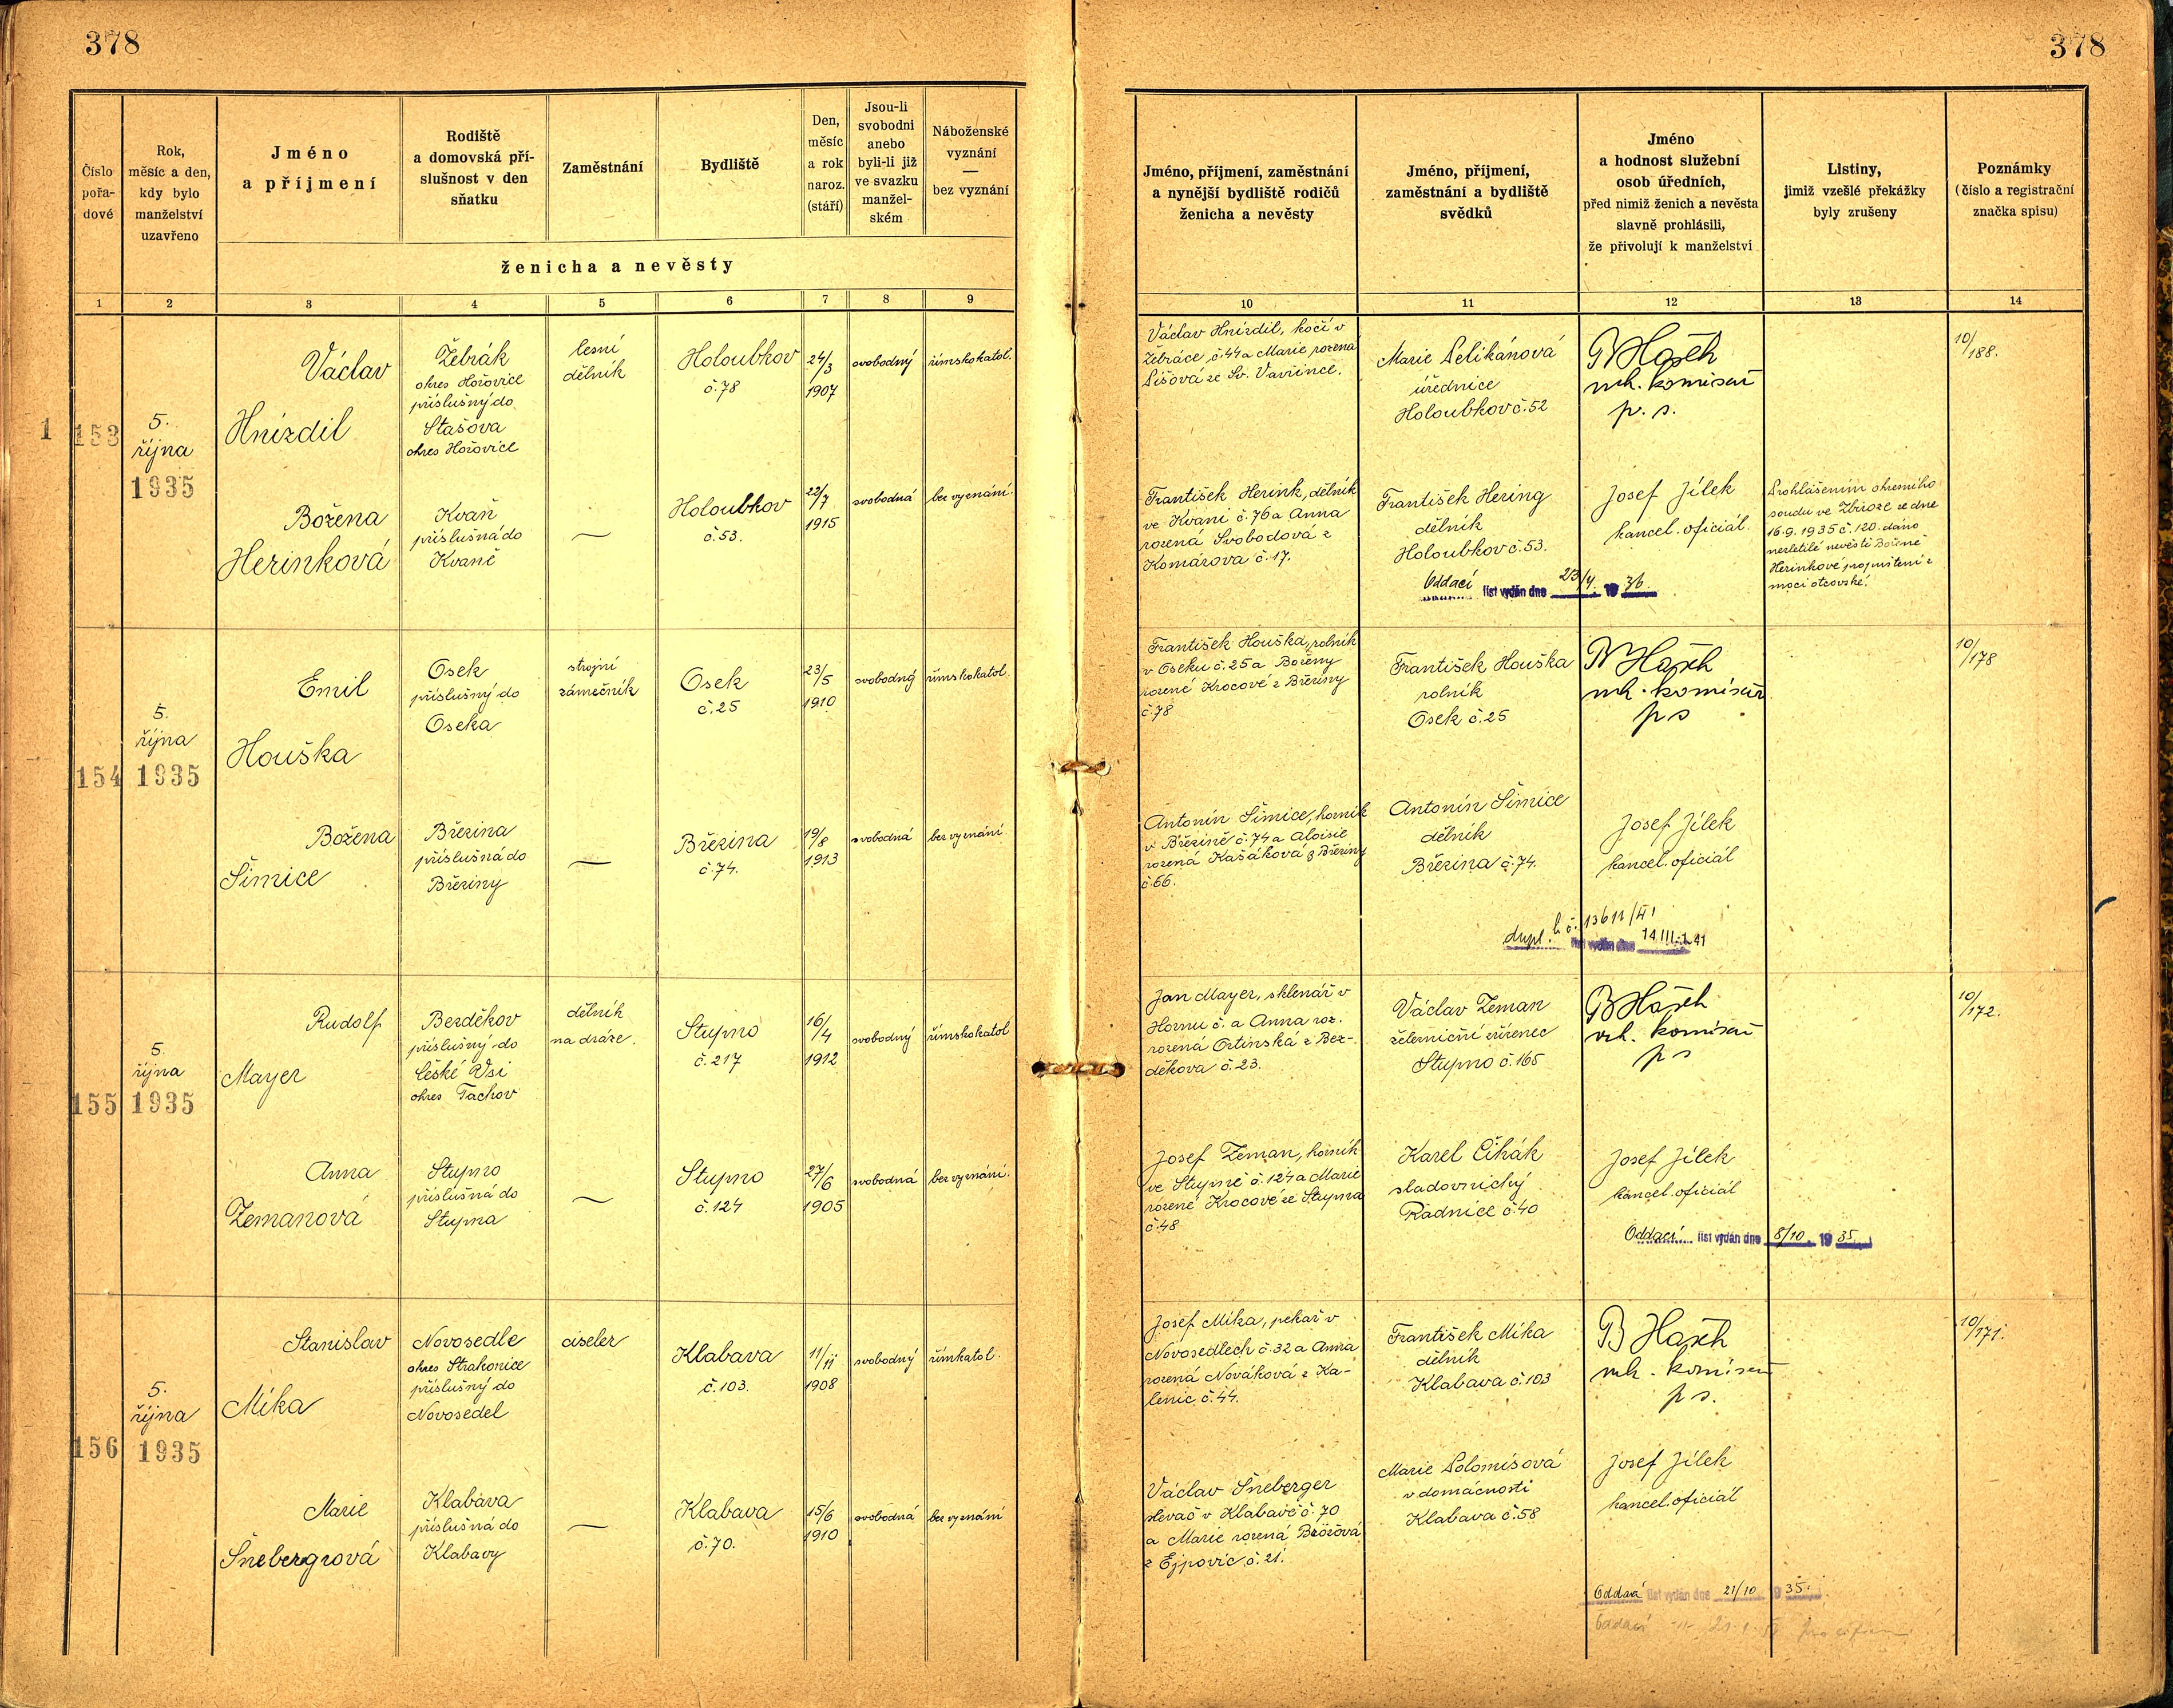 378
378
Číslo
pořa-
dové
Rok,
měsíc a den,
kdy bylo
manželství
uzavřeno
Jméno
a příjmení
Rodiště
a domovská pří-
slušnost v den
sňatku
Zaměstnání
Bydliště
Den,
měsíc
a rok
naroz.
(stáří)
Jsou-li
svobodni
anebo
byli-li již
ve svazku
manžel-
ském
Náboženské
vyznání
—
bez vyznání
ženicha a nevěsty
Jméno, příjmení, zaměstnání
a nynější bydliště rodičů
ženicha a nevěsty
Jméno, příjmení,
zaměstnání a bydliště
svědků
Jméno
a hodnost služební
osob úředních,
před nimiž ženich a nevěsta
slavně prohlásili,
že přivolují k manželství
Listiny,
jimiž vzešlé překážky
byly zrušeny
Poznámky
(číslo a registrační
značka spisu)
1 2 3 4 5 6 7 8 9 10 11 12 13 14
1
153
5.
října
1935
Václav
Hnízdil
Žebrák
okres Hořovice
příslušný do
Stašova
okres Hořovice
lesní
dělník
Holoubkov
č. 78
24/3
1907
svobodný
římskokatol.
Václav Hnízdil, kočí v
Žebráce č. 44 a Marie rozená
Lišová ze Sv. Vavřince.
Marie Pelikánová
úřednice
Holoubkov č. 52
vrch. komisař
p. s.
10/188.
Božena
Herinková
Kvaň
příslušná do
Kvaně
—
Holoubkov
č. 53.
22/7
1915
svobodná
bez vyznání.
František Herink, dělník
ve Kvani č. 76 a Anna
rozená Svobodová z
Komárova č. 17.
František Hering
dělník
Holoubkov č. 53.
Josef Jílek
kancel. oficiál.
Prohlášením okresního
soudu ve Zbiroze ze dne
16.9.1935 č. 120. dáno
nezletilé nevěstě Boženě
Herinkové propuštění z
moci otcovské.
Oddací list vydán dne 23/4. 1936.
154
5.
října
1935
Emil
Houška
Osek
příslušný do
Oseka
strojní
zámečník
Osek
č. 25
23/5
1910
svobodný
římskokatol.
František Houška, rolník
v Oseku č. 25 a Boženy
rozené Krocové z Březiny
č. 78
František Houška
rolník
Osek č. 25
vrch. komisař
p s
10/178
Božena
Šimice
Březina
příslušná do
Březiny
—
Březina
č. 74.
19/8
1913
svobodná
bez vyznání.
Antonín Šimice, horník
v Březině č. 74 a Aloisie
rozená Kašáková z Březiny
č. 66.
Antonín Šimice
dělník
Březina č. 74.
Josef Jílek
kancel. oficiál
dupl. list vydán dne 14 III. 1941
155
5.
října
1935
Rudolf
Mayer
Bezděkov
příslušný do
České Vsi
okres Tachov
dělník
na dráze.
Stupno
č. 217
16/4
1912
svobodný
římskokatol
Jan Mayer, sklenář v
Hornu č. a Anna roz.
rozená Ortinská z Bez-
děkova č. 23.
Václav Zeman
železniční zřízenec
Stupno č. 165
vrch. komisař
p s
10/172.
Anna
Zemanová
Stupno
příslušná do
Stupna
—
Stupno
č. 124
27/6
1905
svobodná
bez vyznání.
Josef Zeman, horník
ve Stupně č. 124 a Marie
rozené Krocové ze Stupna
č. 48
Karel Čihák
sladovnický
Radnice č. 40
Josef Jílek
kancel. oficiál
Oddací list vydán dne 8/10. 1935.
156
5.
října
1935
Stanislav
Míka
Novosedle
okres Strakonice
příslušný do
Novosedel
ciseler
Klabava
č. 103.
11/11
1908
svobodný
římkatol.
Josef Míka, pekař v
Novosedlech č. 32 a Anna
rozená Nováková z Ka-
lenic č. 44.
František Míka
dělník
Klabava č. 103
vrch. komisař
p s.
10/171.
Marie
Šnebergrová
Klabava
příslušná do
Klabavy
—
Klabava
č. 70.
15/6
1910
svobodná
bez vyznání
Václav Šneberger
slevač v Klabavě č. 70
a Marie rozená Brožová
z Ejpovic č. 21.
Marie Polomisová
v domácnosti
Klabava č. 58
Josef Jílek
kancel. oficiál
Oddací list vydán dne 21/10 1935.